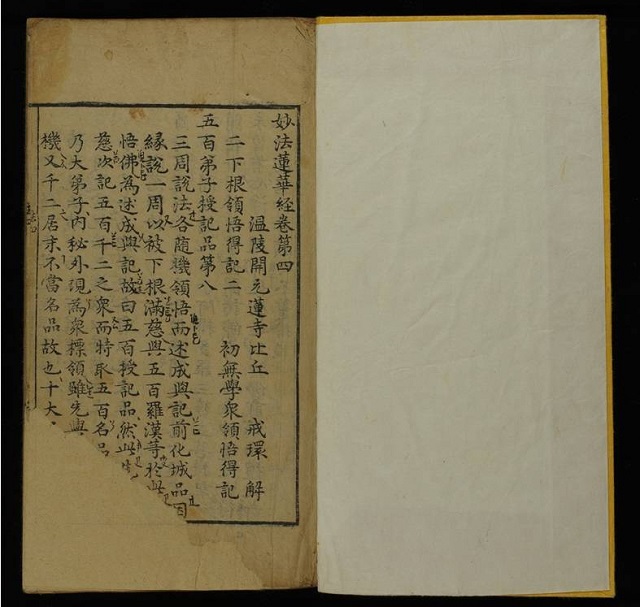 妙法蓮華經卷第四
溫陵開元蓮寺比丘 戒環 解
二下根領悟得記二 初無學衆領悟得記
五百弟子授記品第八
三周說法各隨機領悟而述成與記前化城品因
緣說一周以被下根滿慈與五百羅漢等於此
悟佛爲述成與記故曰五百授記品然此
慈次記五百千二之衆而特取五百名品
乃大弟子內秘外現爲衆標領雖先與
機又千二居末不當名品故也十大